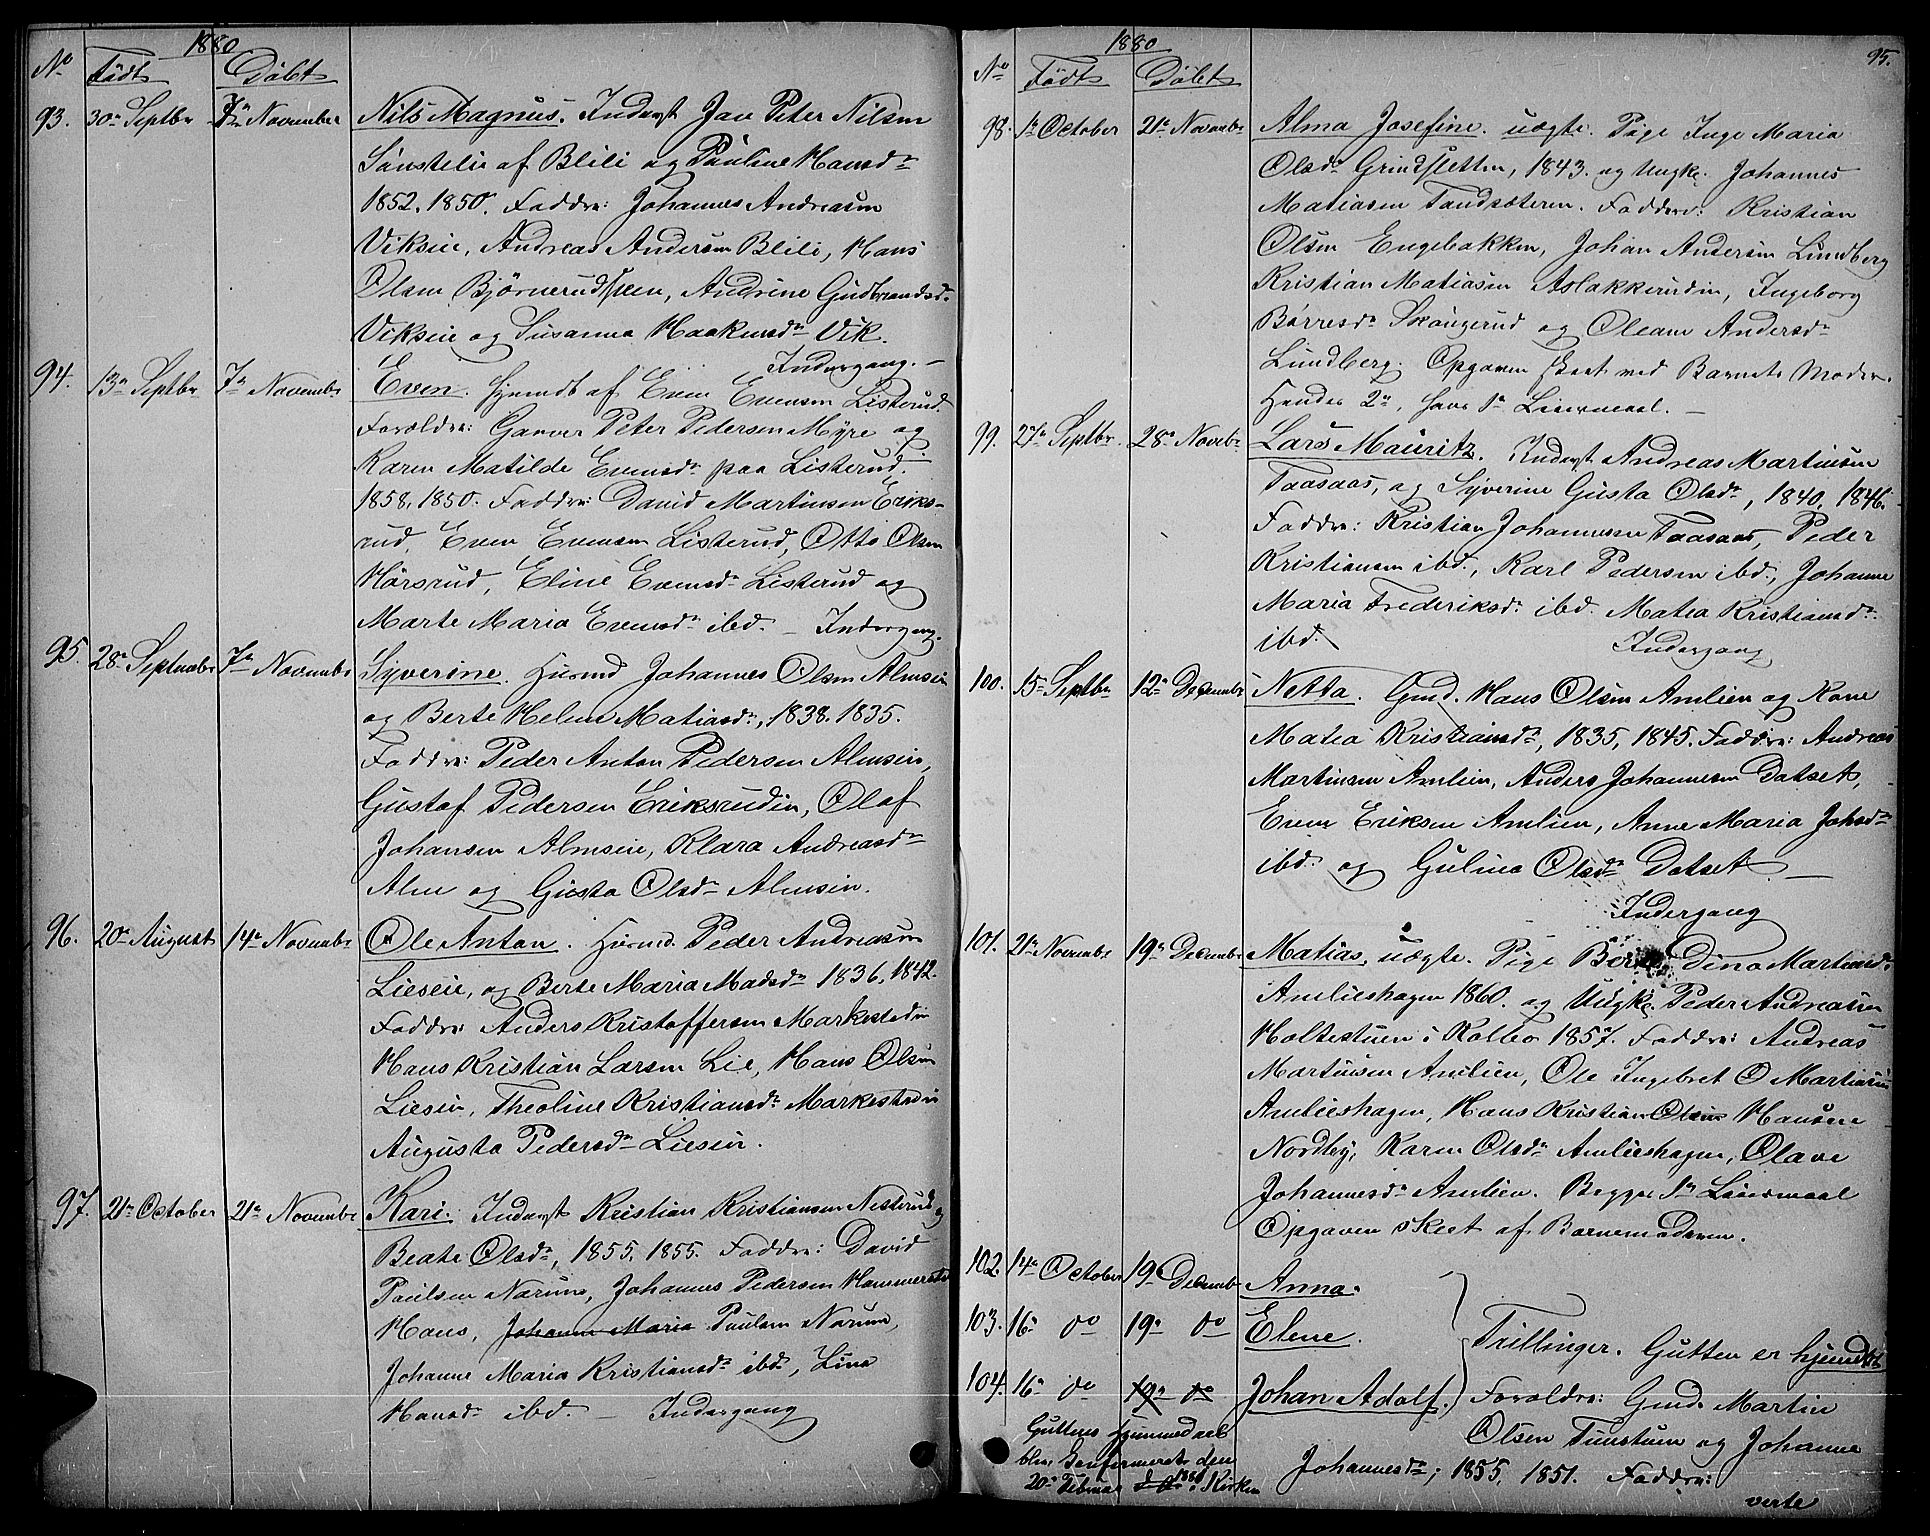 1880
No Født Døbt
93. 30te Septbr 7de November Nils Magnus. Inderst Jan Peter Nilsen
Sønstelie af Blili og Pauline Hansdr
1852. 1850. Faddre: Johannes Andreasen
Vikseie, Andreas Andersen Blili, Hans
Olsen Bjørnerud, Andrine Gudbrandsdr
Viksei og Susanna Haakensdr Vik.
Indergang.
94. 13de Septbr 7de Novembr Even. Hjemdt af Even Evensen Listerud.
Forældre: Garver Peter Pedersen Myre og
Karen Matilde Evensdr paa Listerud.
1858. 1850. Faddre: David Martinsen Eriks-
rud, Even Evensen Listerud, Otto Olsen
Hørsrud, Eline Evensdr Listerud og
Marte Maria Evensdr ibd. – Indergang.
95. 28de Septembr 7de Novembr Syverine. Husmd Johannes Olsen Almsei
og Berte Helene Matiasdr, 1838. 1835.
Faddre: Peder Anton Pedersen Almsei,
Gustaf Pedersen Eriksrudei, Olaf
Johansen Almseie, Klara Andreasdr
Alm og Gusta Olsdr Almsei.
96. 20de August 14de Novembr Ole Anton. Husmd. Peder Andreasen
Lieseie, og Berte Maria Madsdr 1836. 1842.
Faddre Anders Kristoffersen Markestadei
Hans Kristian Larsen Lie, Hans Olsen
Liesei, Theoline Kristiansdr Markestadei
Augusta Pedersdr Liesei.
97. 21de October 21de Novembr Kari. Inderst Kristian Kristiansen Nesterud og
Beate Olsdr, 1855. 1855. Faddre: David
Paulsen Narum, Johannes Pedersen Hammerstad
Hans, Johanne Maria Paulsen Narum,
Johanne Maria Kristiansdr ibd, Lina
Hansdr ibd. – Indergang
1880 95.
No Født Døbt
98. 1te October 21de Novembr Alma Josefine. uægte. Pige Inge Maria
Olsdr Grindsletten, 1843. og Ungk. Johannes
Matiasen Tandsæteren. Faddere: Kristian
Olsen Engebakken, Johan Andersen Lundberg
Kristian Matiasen Aslakkerudei, Ingeborg
Børresdr Skougerud og Oleane Andersdr
Lundberg. Opgaven skeet ved Barnets Moder.
Hendes 2de, hans 1te Leiermaal. –
99. 27de Septbr. 28de Novbr. Lars Mauritz. Inderst Andreas Martinsen
Taasaas, og Syverine Gusta Olsdr, 1840. 1846.
Faddre: Kristian Johannesen Taasaas, Peder
Kristiansen ibd., Karl Pedersen ibd., Johanne
Maria Frederiksdr. ibd. Matea Kristiansdr
ibd. Indergang
100. 15de Septbr 12de Decembr Netta. Gmd. Hans Olsen Amlien og Kone
Matea Kristiansdr, 1835, 1845. Faddre: Andreas
Martinsen Amlien, Anders Johannesen Datset,
Even Eriksen Amlien, Anne Maria Johsdr
ibd. og Gulina Olsdr Datset –
Indergang
101. 21de Novembr 19de Decembr Matias, uægte. Pige Dina Martinsdr
Amlieshagen 1860. og Ungk. Peder Andreasen
Holtestuen i Kolbo 1857. Faddre: Andreas
Martinsen Amlien, Ole Ingebret O Martinsen
Amlieshagen, Hans Kristian Olsen Hansen
Nordby, Karen Olsdr Amlieshagen, Olave
Johannesdr Amlien. Begges 1te Leiermaal
Opgaven skeet af Barnemoderen.
102. 14de October 19de Decembr Anna.
103. 16de do 19de do Elene. Trillinger. Gutten er hjemdøbt
104. 16de do 19de do Johan Adolf. Forældre: Gmd. Martin
Olsen Tunstuen og Johanne
Johannesdr; 1855, 1851. Faddre:
Guttens Hjemmedaab
blev Confirmeret den
20de Februar 1881 i Kirken
verte